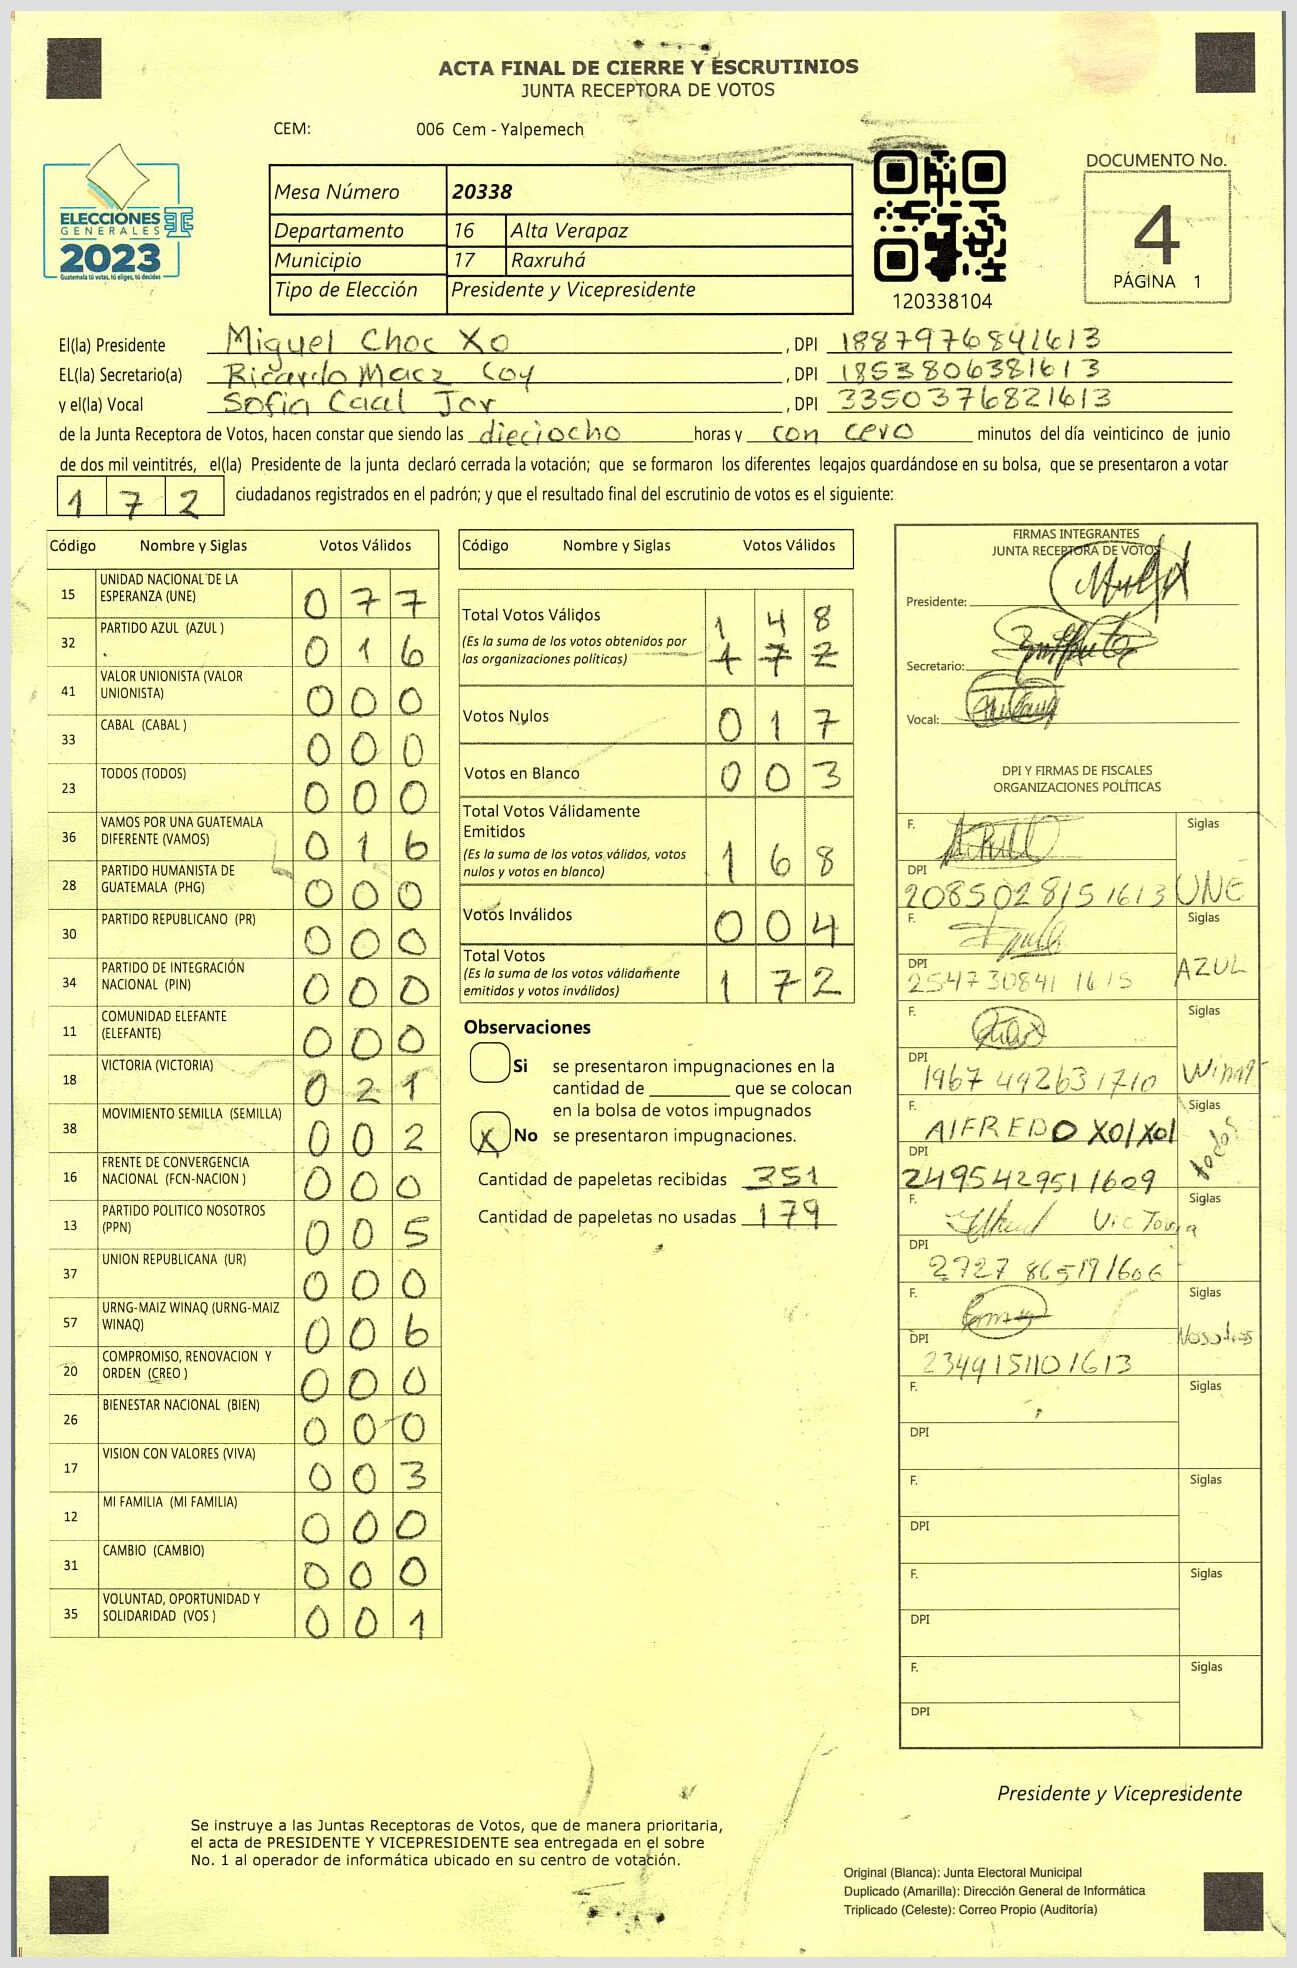 ACTA FINAL DE CIERRE Y ESCRUTINIOS
JUNTA RECEPTORA DE VOTOS
CEM: 006 Cem - Yalpemech
ELECCIONES
GENERALES
2023
Guatemala tú votas, tú eliges, tú decides
Mesa Número 20338
Departamento 16 Alta Verapaz
Municipio 17 Raxruhá
Tipo de Elección Presidente y Vicepresidente
120338104
DOCUMENTO No.
4
PÁGINA 1
El(la) Presidente Miguel Choc Xo , DPI 1887976841613
EL(la) Secretario(a) Ricardo Macz Coy , DPI 1853806381613
y el(la) Vocal Sofia Caal Jor , DPI 3350376821613
de la Junta Receptora de Votos, hacen constar que siendo las dieciocho horas y con cero minutos del día veinticinco de junio
de dos mil veintitrés, el(la) Presidente de la junta declaró cerrada la votación; que se formaron los diferentes legajos guardándose en su bolsa, que se presentaron a votar
172 ciudadanos registrados en el padrón; y que el resultado final del escrutinio de votos es el siguiente:
Código Nombre y Siglas Votos Válidos
15 UNIDAD NACIONAL DE LA ESPERANZA (UNE) 077
32 PARTIDO AZUL (AZUL ) 016
41 VALOR UNIONISTA (VALOR UNIONISTA) 000
33 CABAL (CABAL ) 000
23 TODOS (TODOS) 000
36 VAMOS POR UNA GUATEMALA DIFERENTE (VAMOS) 016
28 PARTIDO HUMANISTA DE GUATEMALA (PHG) 000
30 PARTIDO REPUBLICANO (PR) 000
34 PARTIDO DE INTEGRACIÓN NACIONAL (PIN) 000
11 COMUNIDAD ELEFANTE (ELEFANTE) 000
18 VICTORIA (VICTORIA) 021
38 MOVIMIENTO SEMILLA (SEMILLA) 002
16 FRENTE DE CONVERGENCIA NACIONAL (FCN-NACION ) 000
13 PARTIDO POLITICO NOSOTROS (PPN) 005
37 UNION REPUBLICANA (UR) 000
57 URNG-MAIZ WINAQ (URNG-MAIZ WINAQ) 006
20 COMPROMISO, RENOVACION Y ORDEN (CREO ) 000
26 BIENESTAR NACIONAL (BIEN) 000
17 VISION CON VALORES (VIVA) 003
12 MI FAMILIA (MI FAMILIA) 000
31 CAMBIO (CAMBIO) 000
35 VOLUNTAD, OPORTUNIDAD Y SOLIDARIDAD (VOS ) 001
Código Nombre y Siglas Votos Válidos
Total Votos Válidos 148
(Es la suma de los votos obtenidos por
las organizaciones políticas) 172
Votos Nulos 017
Votos en Blanco 003
Total Votos Válidamente
Emitidos
(Es la suma de los votos válidos, votos
nulos y votos en blanco) 168
Votos Inválidos 004
Total Votos
(Es la suma de los votos válidamente
emitidos y votos inválidos) 172
Observaciones
Si se presentaron impugnaciones en la
cantidad de ________ que se colocan
en la bolsa de votos impugnados
X No se presentaron impugnaciones.
Cantidad de papeletas recibidas 351
Cantidad de papeletas no usadas 179
FIRMAS INTEGRANTES
JUNTA RECEPTORA DE VOTOS
Presidente:
Secretario:
Vocal:
DPI Y FIRMAS DE FISCALES
ORGANIZACIONES POLÍTICAS
F. Siglas
DPI
2085028151613 UNE
F. Siglas
DPI
2547308411615 AZUL
F. Siglas
DPI
1967492631710 Winaq
F. AlFREDO XOl XOl Siglas
DPI todos
2495429511609
F. Victoria Siglas
DPI
2727865191606
F. Siglas
DPI Nosotros
2349151101613
F. Siglas
DPI
F. Siglas
DPI
F. Siglas
DPI
F. Siglas
DPI
Presidente y Vicepresidente
Se instruye a las Juntas Receptoras de Votos, que de manera prioritaria,
el acta de PRESIDENTE Y VICEPRESIDENTE sea entregada en el sobre
No. 1 al operador de informática ubicado en su centro de votación.
Original (Blanca): Junta Electoral Municipal
Duplicado (Amarilla): Dirección General de Informática
Triplicado (Celeste): Correo Propio (Auditoría)